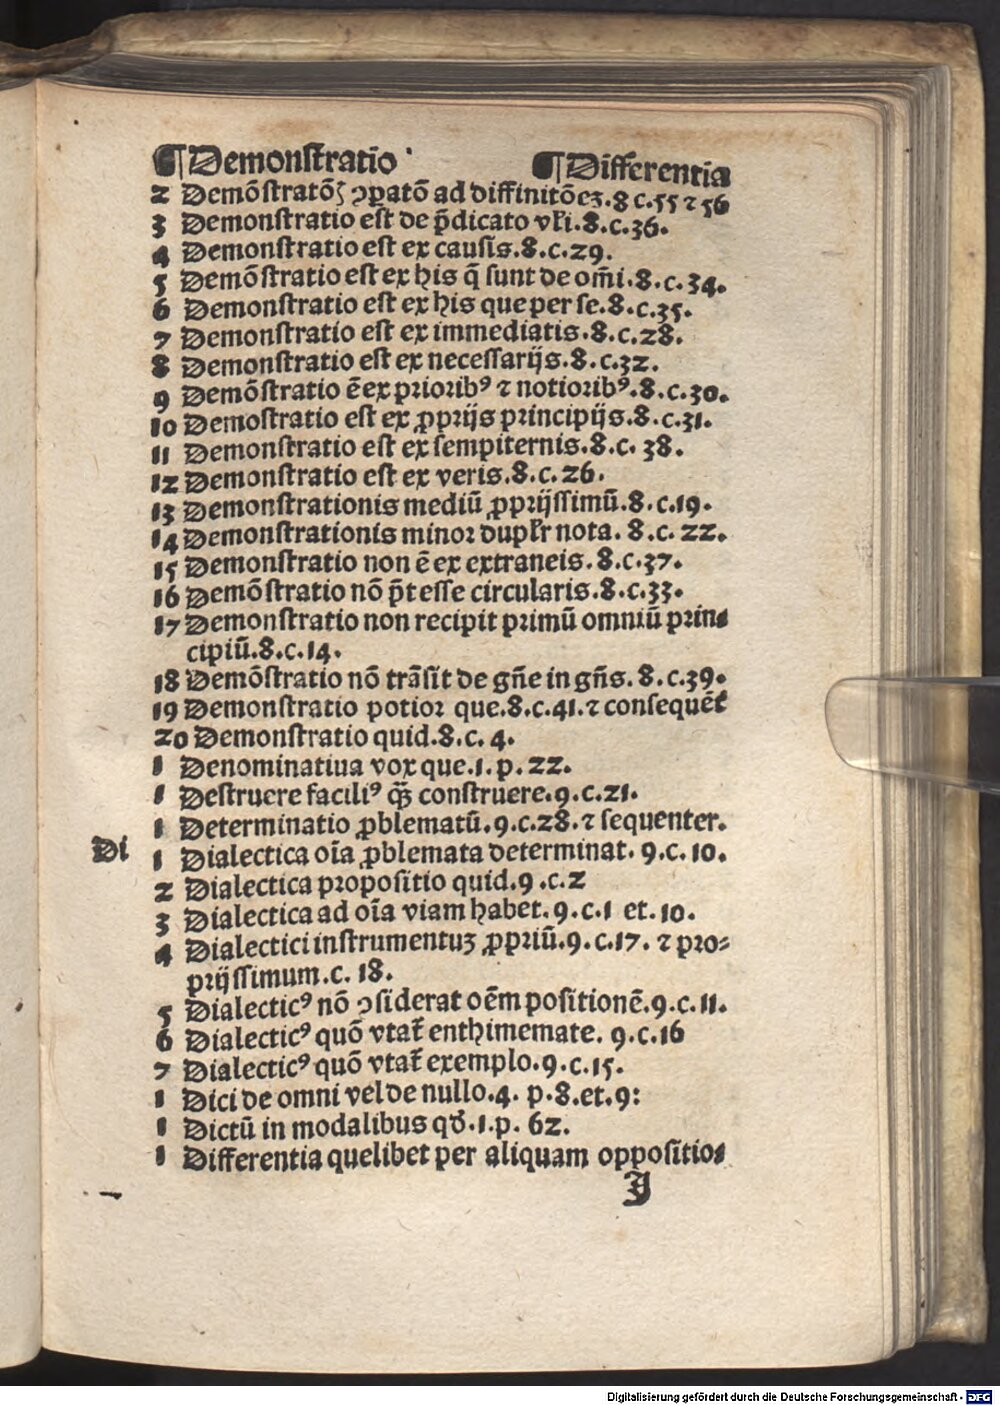 ¶Demonstratio ¶Differentia
2 Demõstratõꝭ ꝯpatõ ad diffinitõeꝫ.8 c.55 ⁊ 56
3 Demonstratio est de p̃dicato vłi.8.c.36.
4 Demonstratio est ex causis.8.c.29.
5 Demõstratio est ex his q̃ sunt de om̃i.8.c.34.
6 Demonstratio est ex his que per se.8.c.35.
7 Demonstratio est ex immediatis.8.c.28.
8 Demonstratio est ex necessarijs.8.c.32.
9 Demõstratio ẽ ex priorib⁹ ⁊ notiorib⁹.8.c.30.
10 Demostratio est ex ꝓprijs principijs.8.c.31.
11 Demonstratio est ex sempiternis.8.c. 38.
12 Demonstratio est ex veris.8.c.26.
13 Demonstrationis mediũ ꝓprijssimũ.8.c.19.
14 Demonstrationis minor duplr̃ nota. 8.c. 22.
15 Demonstratio non ẽ ex extraneis.8.c.37.
16 Demõstratio nõ p̃t esse circularis.8.c.33.
17 Demonstratio non recipit primũ omniũ prin⸗
cipiũ.8.c.14.
18 Demõstratio nõ trãsit de gñe in gñs. 8.c.39.
19 Demonstratio potior que.8.c.41.⁊ consequẽt̃
20 Demonstratio quid.8.c. 4.
1 Denominatiua vox que.1.p.22.
1 Destruere facili⁹ q̃ꝫ construere.9.c.21.
1 Determinatio ꝓblematũ.9.c.28.⁊ sequenter.
Di 1 Dialectica oĩa ꝓblemata determinat. 9.c.10.
2 Dialectica propositio quid.9.c.2
3 Dialectica ad oĩa viam habet.9.c.1 et.10.
4 Dialectici instrumentuꝫ ꝓpriũ.9.c.17. ⁊ pro⸗
prijssimum.c. 18.
5 Dialectic⁹ nõ ꝯsiderat oẽm positionẽ.9.c.11.
6 Dialectic⁹ quõ vtat̃ enthimemate. 9.c.16
7 Dialectic⁹ quõ vtat̃ exemplo.9.c.15.
1 Dici de omni vel de nullo.4. p.8.et.9:
1 Dictũ in modalibus qđ.1.p. 62.
1 Differentia quelibet per aliquam oppositio⸗
J
Digitalisierung gefördert durch die Deutsche Forschungsgemeinschaft - DFG